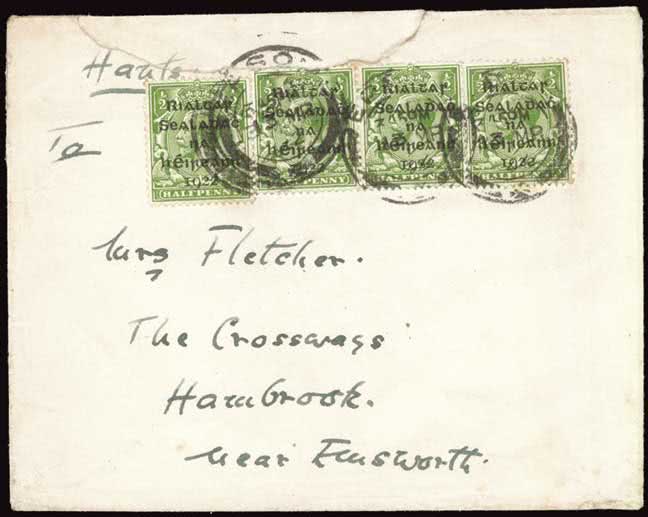 Hants
To
½ ½
Rialtas
Sealadac
na
hÉireann
1922
HALFPENNY
½ ½
Rialtas
Sealadac
na
hÉireann
HALFPENNY
½ ½
Rialtas
Sealadac
na
hÉireann
1922
HALFPENNY
½ ½
Rialtas
Sealadac
na
hÉireann
1922
HALFPENNY
Mrs Fletcher.
The Crossways
Hambrook.
near Emsworth.